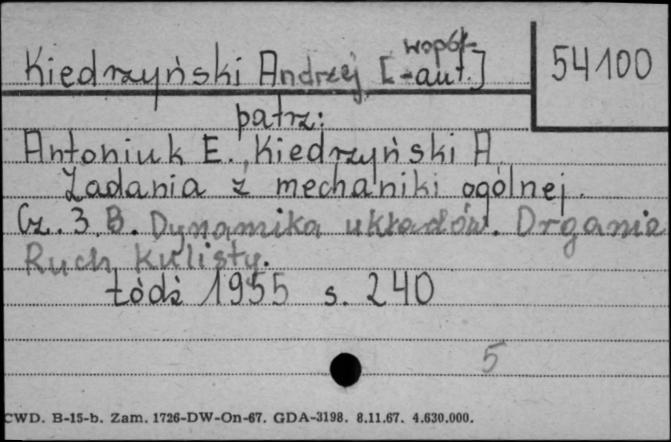 Kiedrzyński Andrzej [współ-aut.]
54100
patrz:
Antoniuk E., Kiedrzyński A.
Zadania z mechaniki ogólnej.
Cz. 3 B. Dynamika układów. Drgania
Ruch kulisty.
Łódź 1955 s. 240
5
CWD. B-15-b. Zam. 1726-DW-On-67. GDA-3198. 8.11.67. 4.630.000.